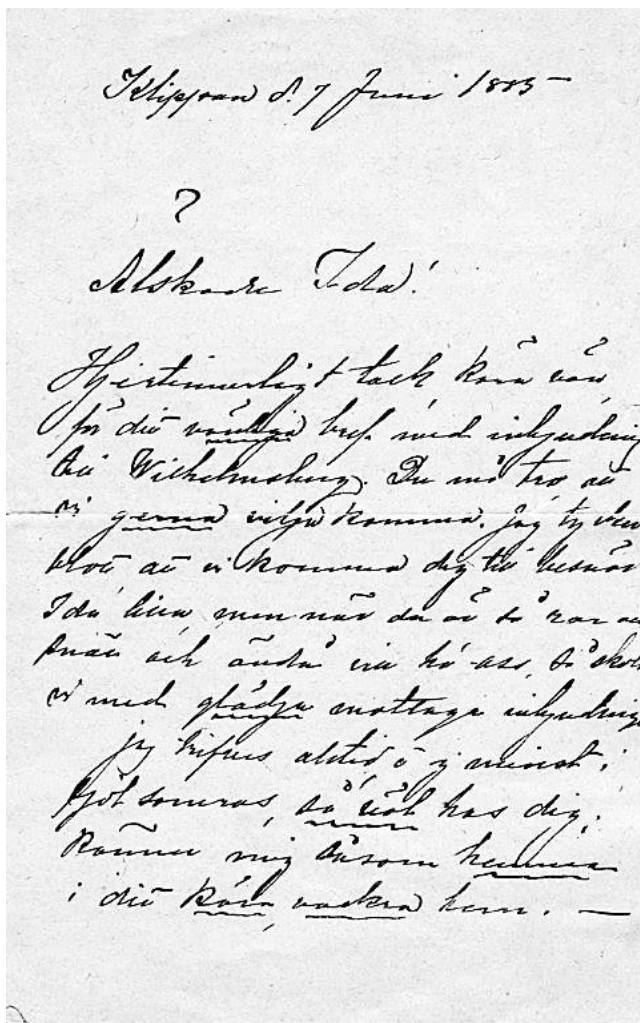 Klippan d. 7 Juni 1885
?
Alskade Ida!
Hjertinnerligt tack kära vän,
för ditt vänliga bref med inbjudning
till Wilhelmsberg. Du må tro att
vi gerna vilja komma. Jag tycker
blott att vi komma dig till besvär
Ida lilla, men när du är så rar
snäll och ändå vill ha oss, så skola
vi med glädje mottaga inbjudning
jag trifves alltid o ej minst i
fjôl somras, så väl hos dig.
Känner mig såsom hemma
i ditt kära, vackra hem. —